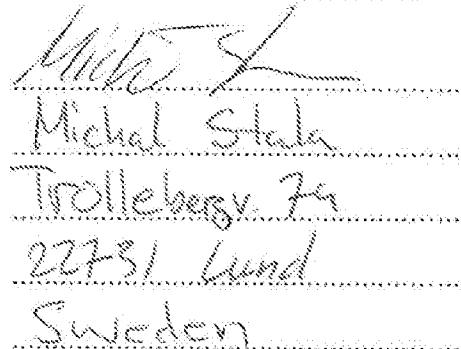 Michal Stala
Trollebergv. 74
22731 Lund
Sweden